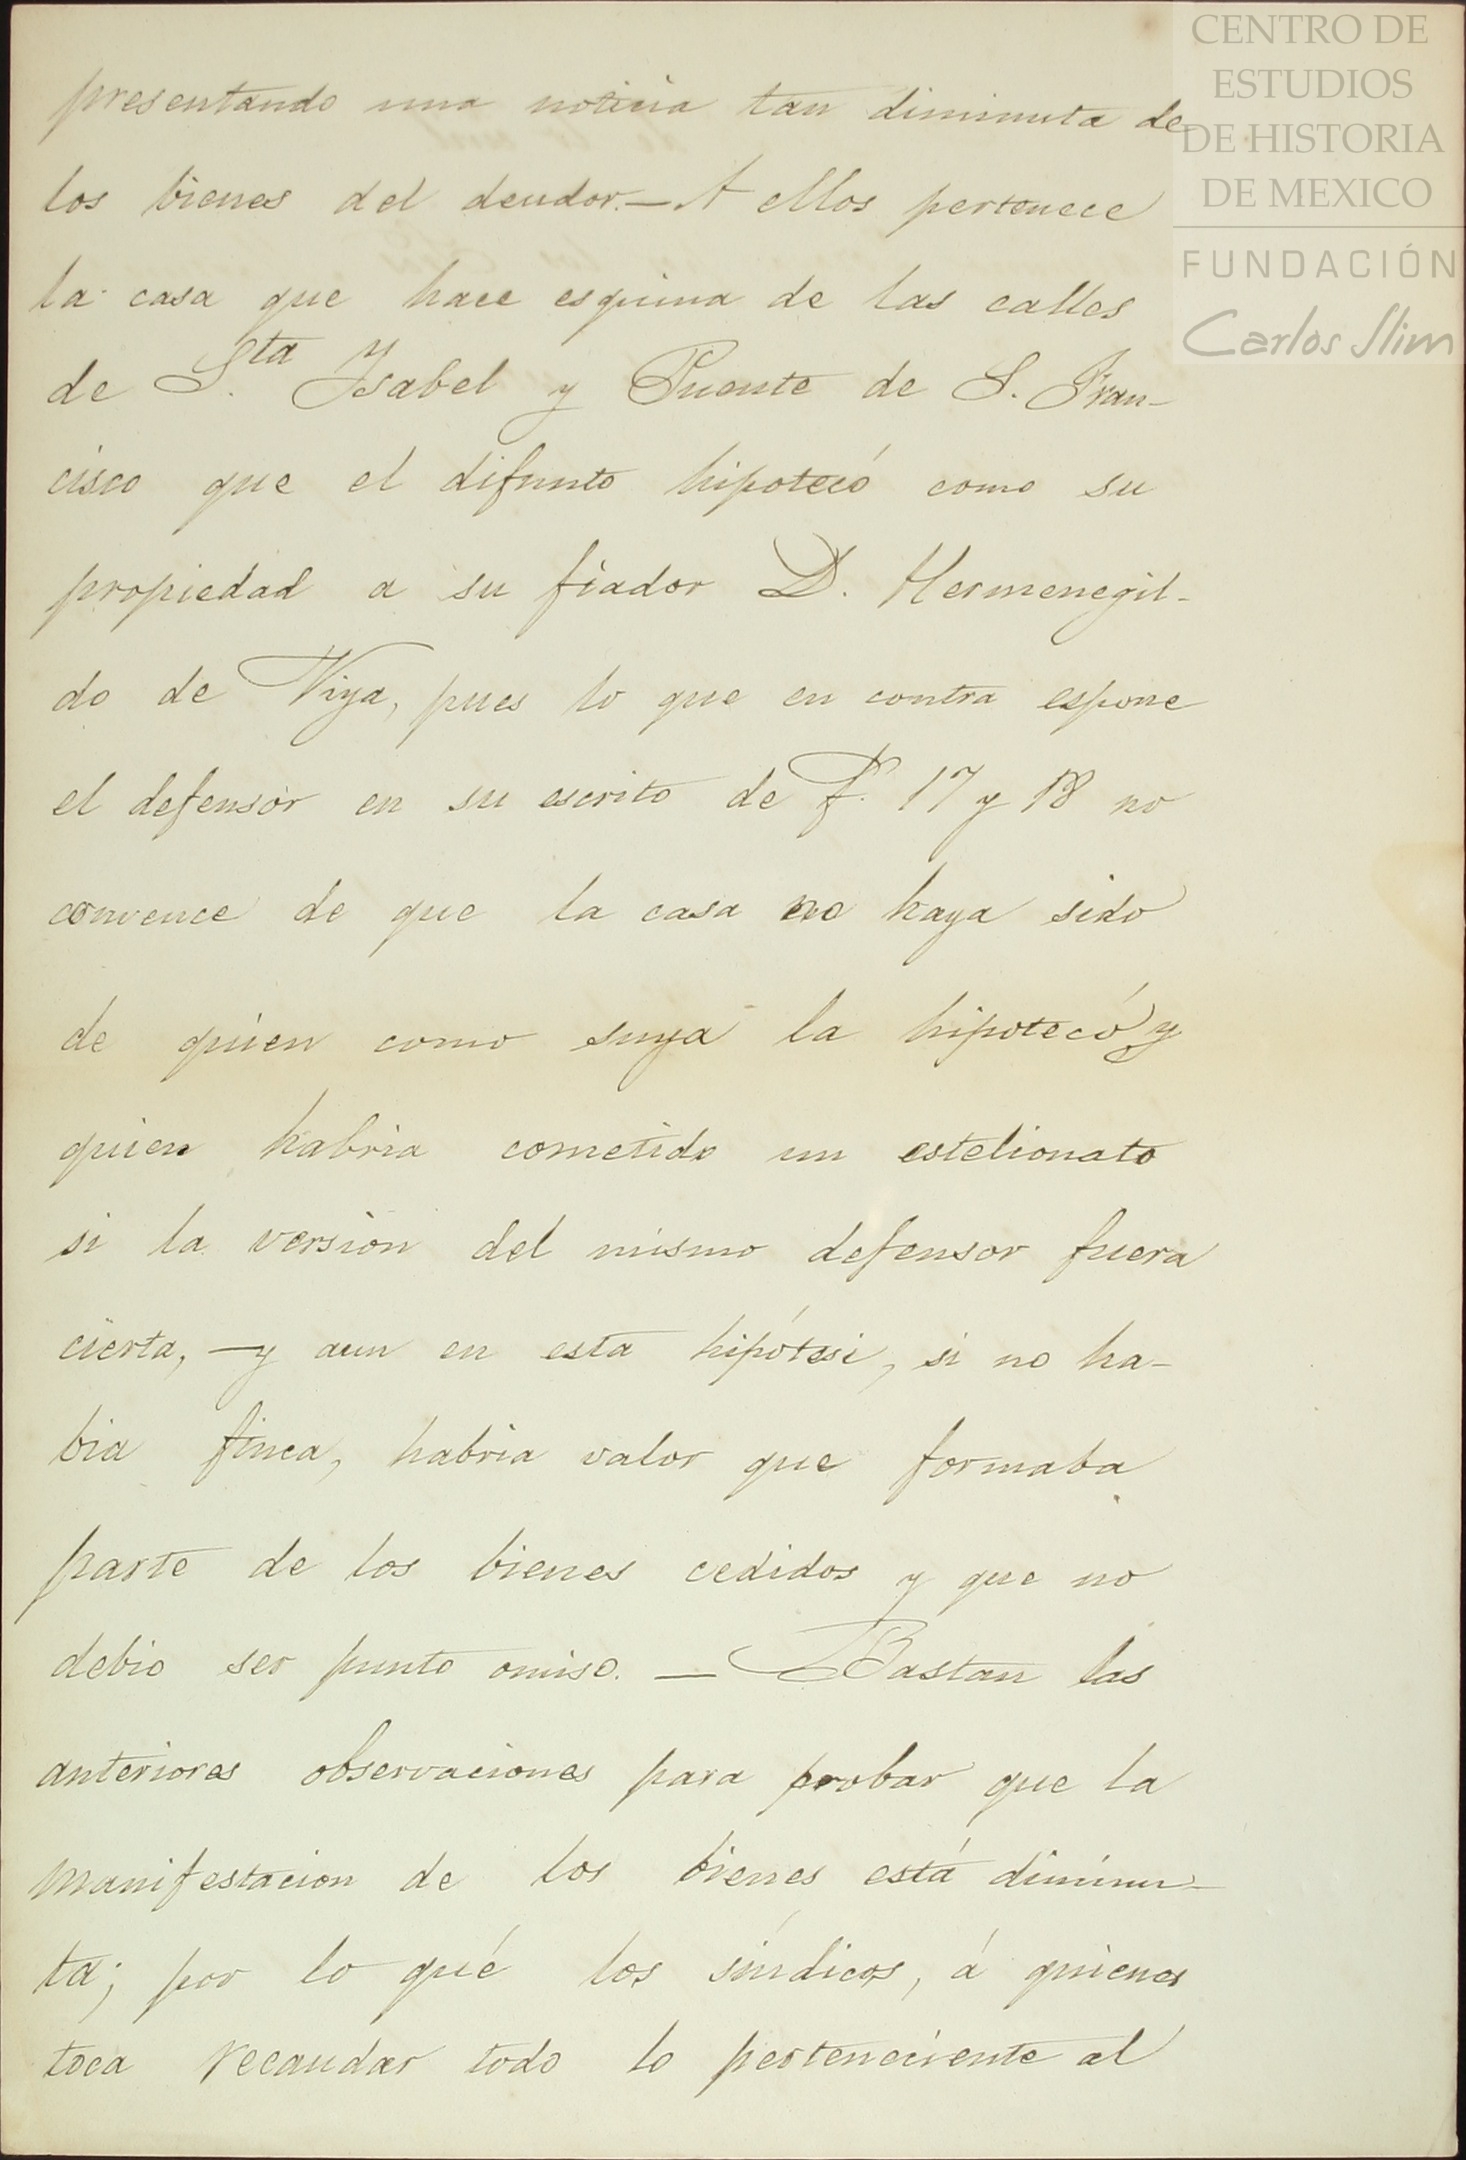 presentando una noticia tan diminuta de
los bienes del deudor.—A ellos pertenece
la casa que hace esquina de las calles
de Sta. Ysabel y Puente de S. Fran-
cisco que el difunto hipotecó como su
propiedad a su fiador D. Hermenegil-
do de Viya, pues lo que en contra espone
el defensor en su escrito de f. 17 y 18 no
convence de que la casa no haya sido
de quien como suya la hipotecó y
quien habria cometido un estelionato
si la version del mismo defensor fuera
cierta,—y aun en esta hipótesi, si no ha-
bia finca, habria valor que formaba
parte de los bienes cedidos y que no
debio ser punto omiso.—Bastan las
anteriores observaciones para probar que la
manifestacion de los bienes está diminu-
ta; por lo qué los síndicos, á quienes
toca recaudar todo lo perteneciente al
CENTRO DE
ESTUDIOS
DE HISTORIA
DE MEXICO
FUNDACIÓN
Carlos Slim